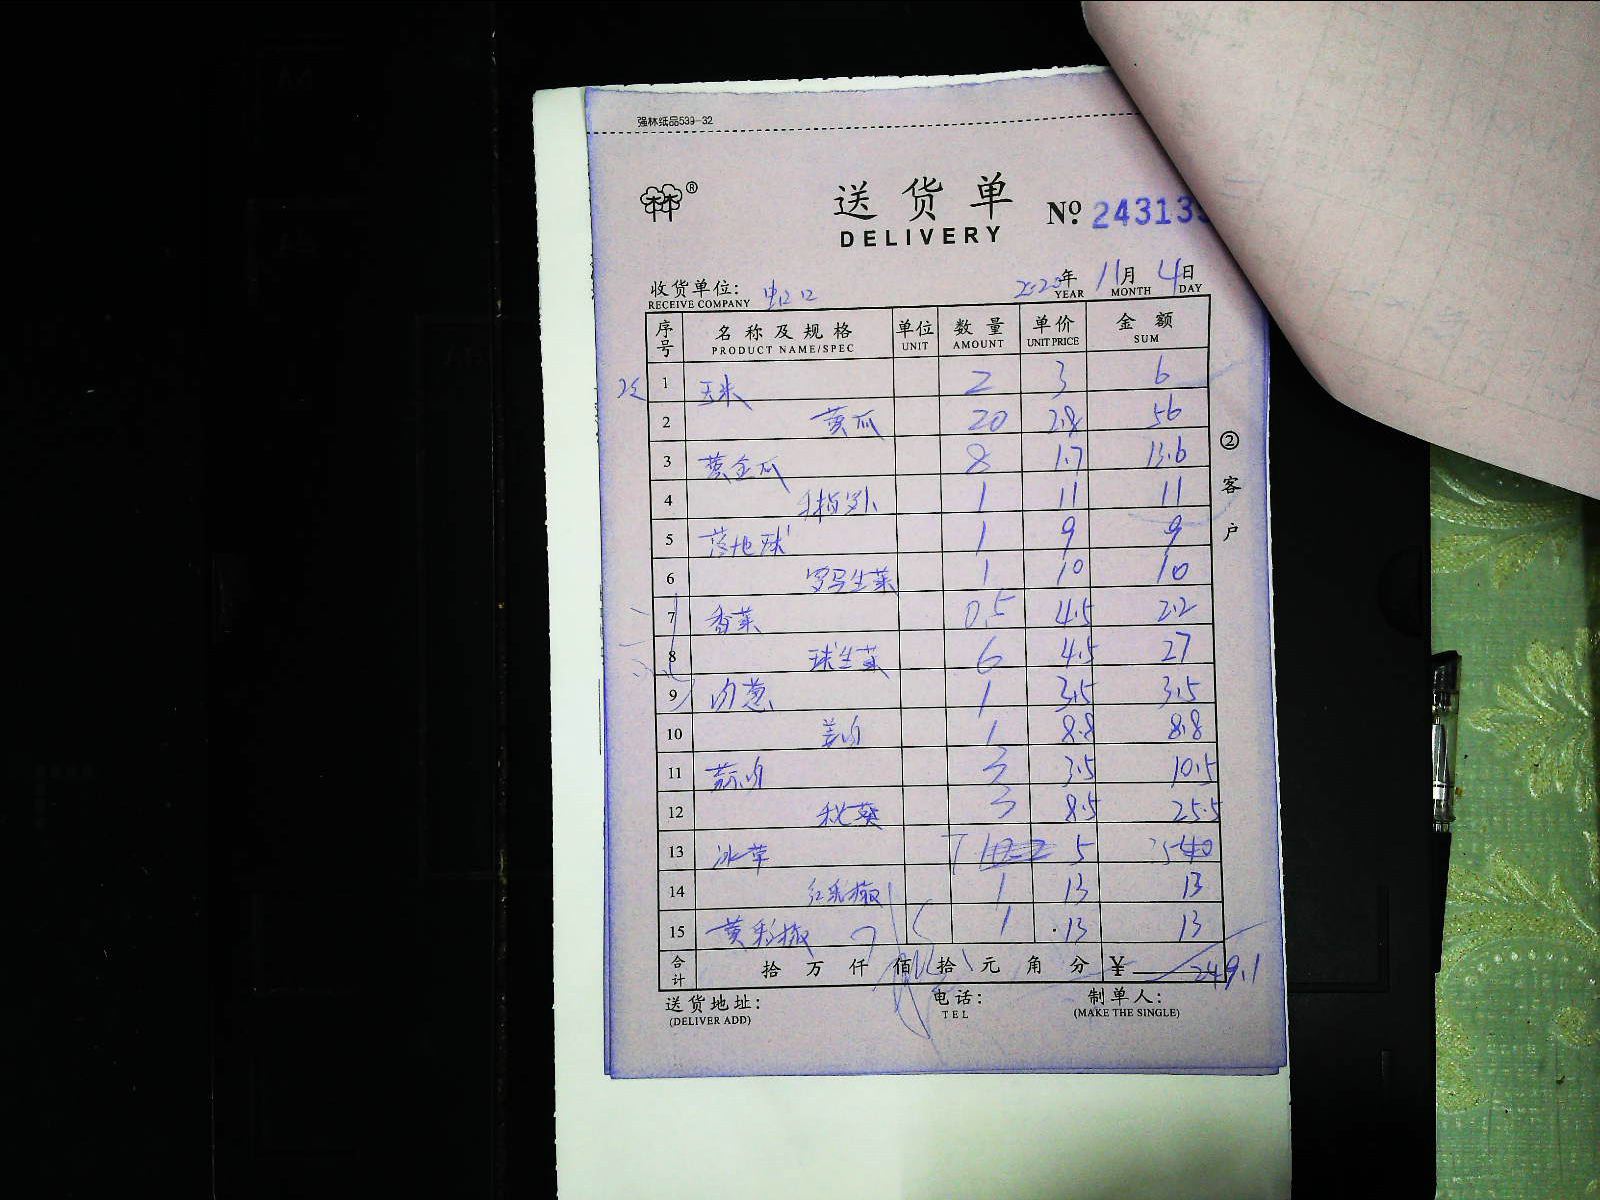 强林纸品539-32
®
送货单
DELIVERY
№ 24313
收货单位:
RECEIVE COMPANY
2020年 11月 4日
YEAR MONTH DAY
序号 名称及规格 单位 数量 单价 金额
PRODUCT NAME/SPEC UNIT AMOUNT UNIT PRICE SUM
1 玉米 2 3 6
2 黄瓜 20 2.8 56
3 黄金瓜 8 1.7 13.6
4 手指萝卜 1 11 11
5 落地球 1 9 9
6 罗马生菜 1 10 10
7 香菜 0.5 4.5 2.2
8 球生菜 6 4.5 27
9 肉葱 1 3.5 3.5
10 姜肉 1 8.8 8.8
11 蒜肉 3 3.5 10.5
12 秋葵 3 8.5 25.5
13 冰草 5
14 红彩椒 1 13 13
15 黄彩椒 1 13 13
合计 拾 万 仟 佰 拾 元 角 分 ¥ 249.1
送货地址:
(DELIVER ADD)
电话:
TEL
制单人:
(MAKE THE SINGLE)
②客户